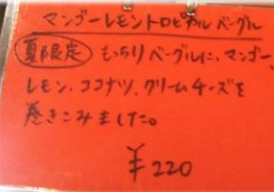 マンゴーレモントロピカルベーグル
夏限定 もっちりベーグルに、マンゴー、
レモン、ココナツ、クリームチーズを
巻きこみました。
¥220